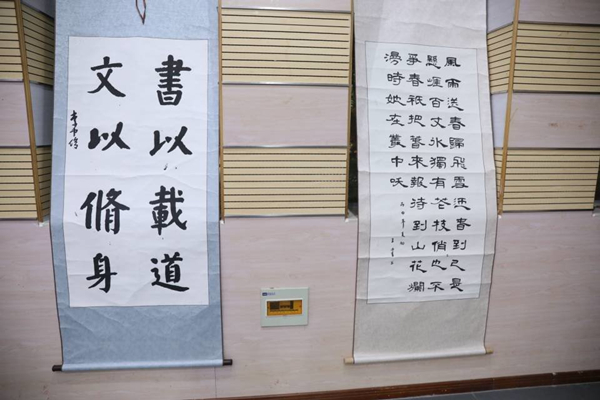 書以載道
文以脩身
風雨送春歸飛雪迎春到已是
懸崖百丈冰獨有花枝俏也不
爭春祇把春來報待到山花爛
漫時她在叢中咲